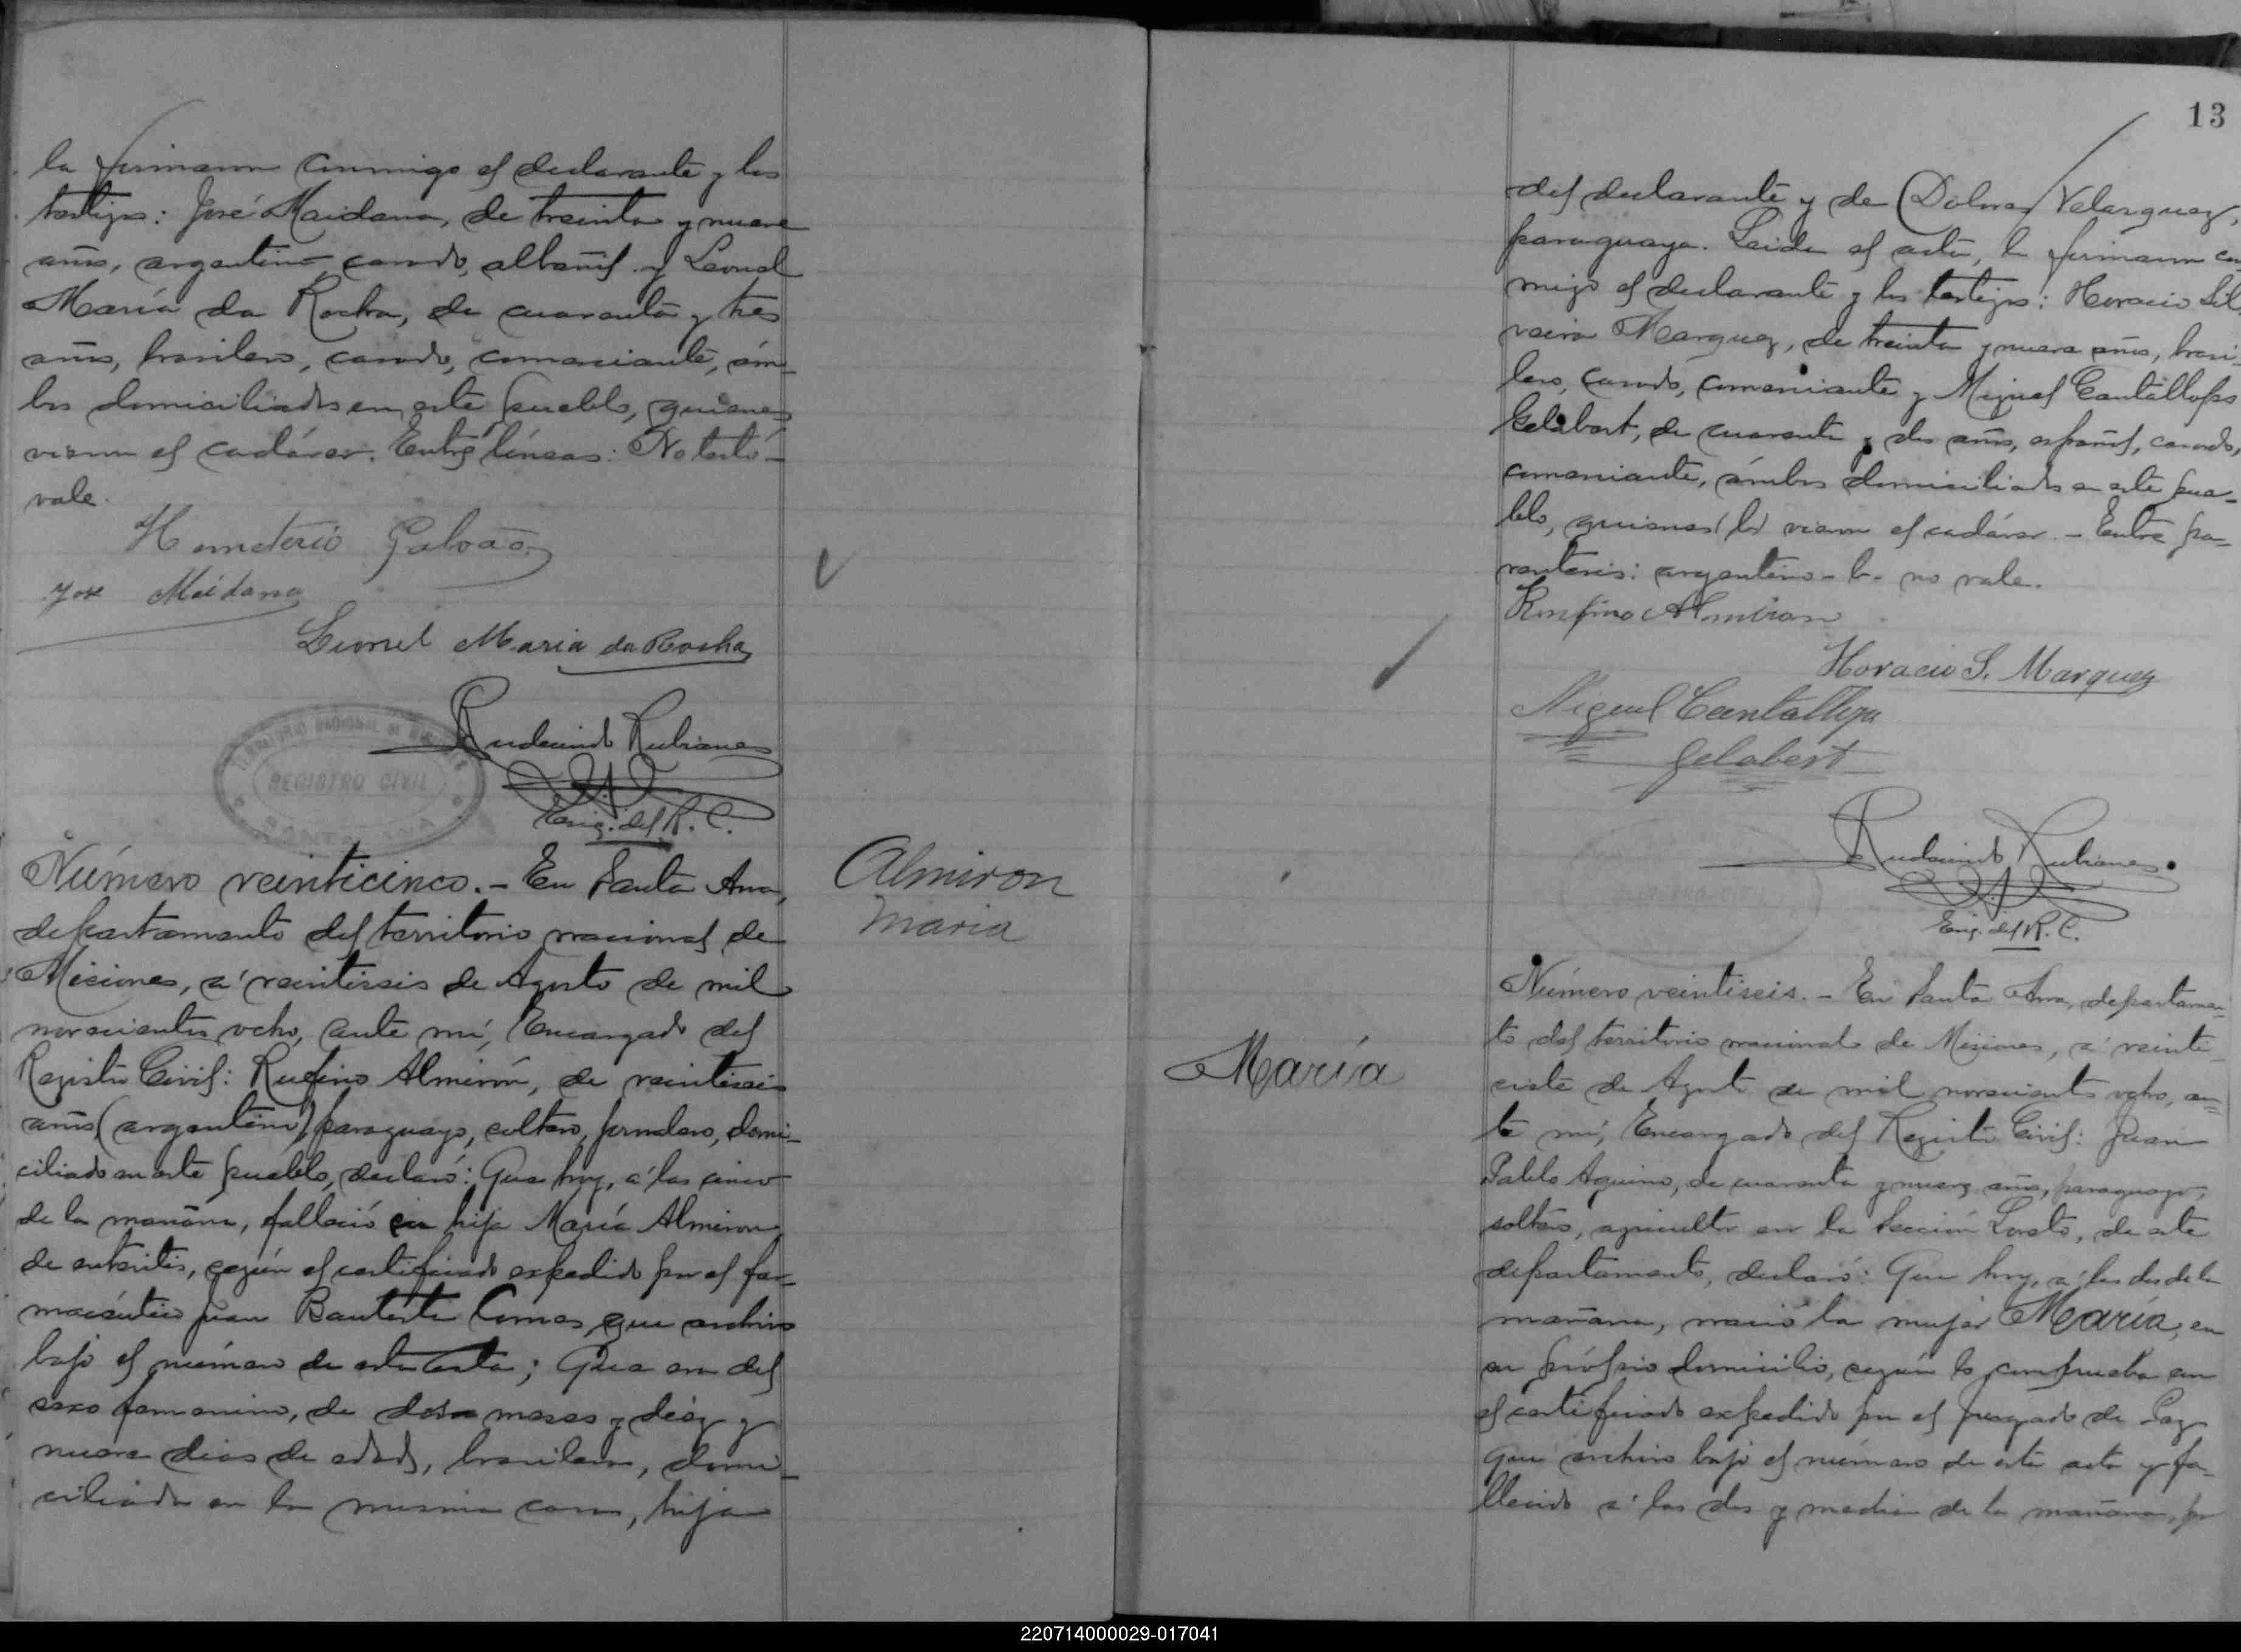 la firmaron conmigo el declarante y los
testigos: José Maidana, de treinta y nueve
años, argentino casado, albañil y Leonel
María da Rocha, de cuarenta y tres
años, brasilero, casado, comerciante, ám-
bos domiciliados en este pueblo, quienes
vieron el cadáver. Entre líneas: No testó-
vale.
Hemeterio Galvão
José Maidana
Leonel Maria da Rocha
Rudecindo
TERRITORIO NACIONAL DE MISIONES
REGISTRO CIVIL
SANTA ANA
Enc. del R. C.
Número veinticinco.- En Santa Ana,
departamento del territorio nacional de
Misiones, a' veintiseis de Agosto de mil
novecientos ocho, ante mí, Encargado del
Registro Civil: Rufino Almirón, de veintiseis
años (argentino) paraguayo, soltero, jornalero, domi-
ciliado en este pueblo, declaró: Que hoy, a' las cinco
de la mañana, falleció su hija María Almiron
de enteritis, según el certificado expedido por el far-
macéutico Juan Bautista Comas que archivo
bajo el número de esta acta; Que era del
sexo femenino, de meses y diez y
nueve dias de edad, brasilera, domi-
ciliada en la misma casa, hija
Almiron
Maria
13
del declarante y de Dolores Velazquez,
paraguaya. Leida el acta, la firmaron con
migo el declarante y los testigos: Horacio Sil
veira Marquez, de treinta y nueve años, brasi-
lero, casado, comerciante y Miguel Cantallops
Gelabert, de cuarenta y dos años, español, casado,
comerciante, ámbos domiciliados en este pue-
blo, quienes (lo) vieron el cadáver. - Entre pa-
rentesis: argentino - lo - no vale.
Rufino Almiron
Horacio S. Marquez
Miguel Cantallops
Gelabert
Rudecindo
Enc. del R. C.
María
Número veintiseis. - En Santa Ana, departamen-
to del territorio nacional de Misiones, a' veinti-
siete de Agosto de mil novecientos ocho, an-
te mí, Encargado del Registro Civil: Juan
Pablo Aquino, de cuarenta y nueve años, paraguayo,
soltero, agricultor en la Sección Loreto, de este
departamento, declaró: Que hoy, a' las dos de la
mañana, nació la mujer María, en
su própio domicilio, según lo comprueba con
el certificado expedido por el Juzgado de Paz
que archivo bajo el número de esta acta y fa-
lleció a' las dos y media de la mañana, por
220714000029-017041